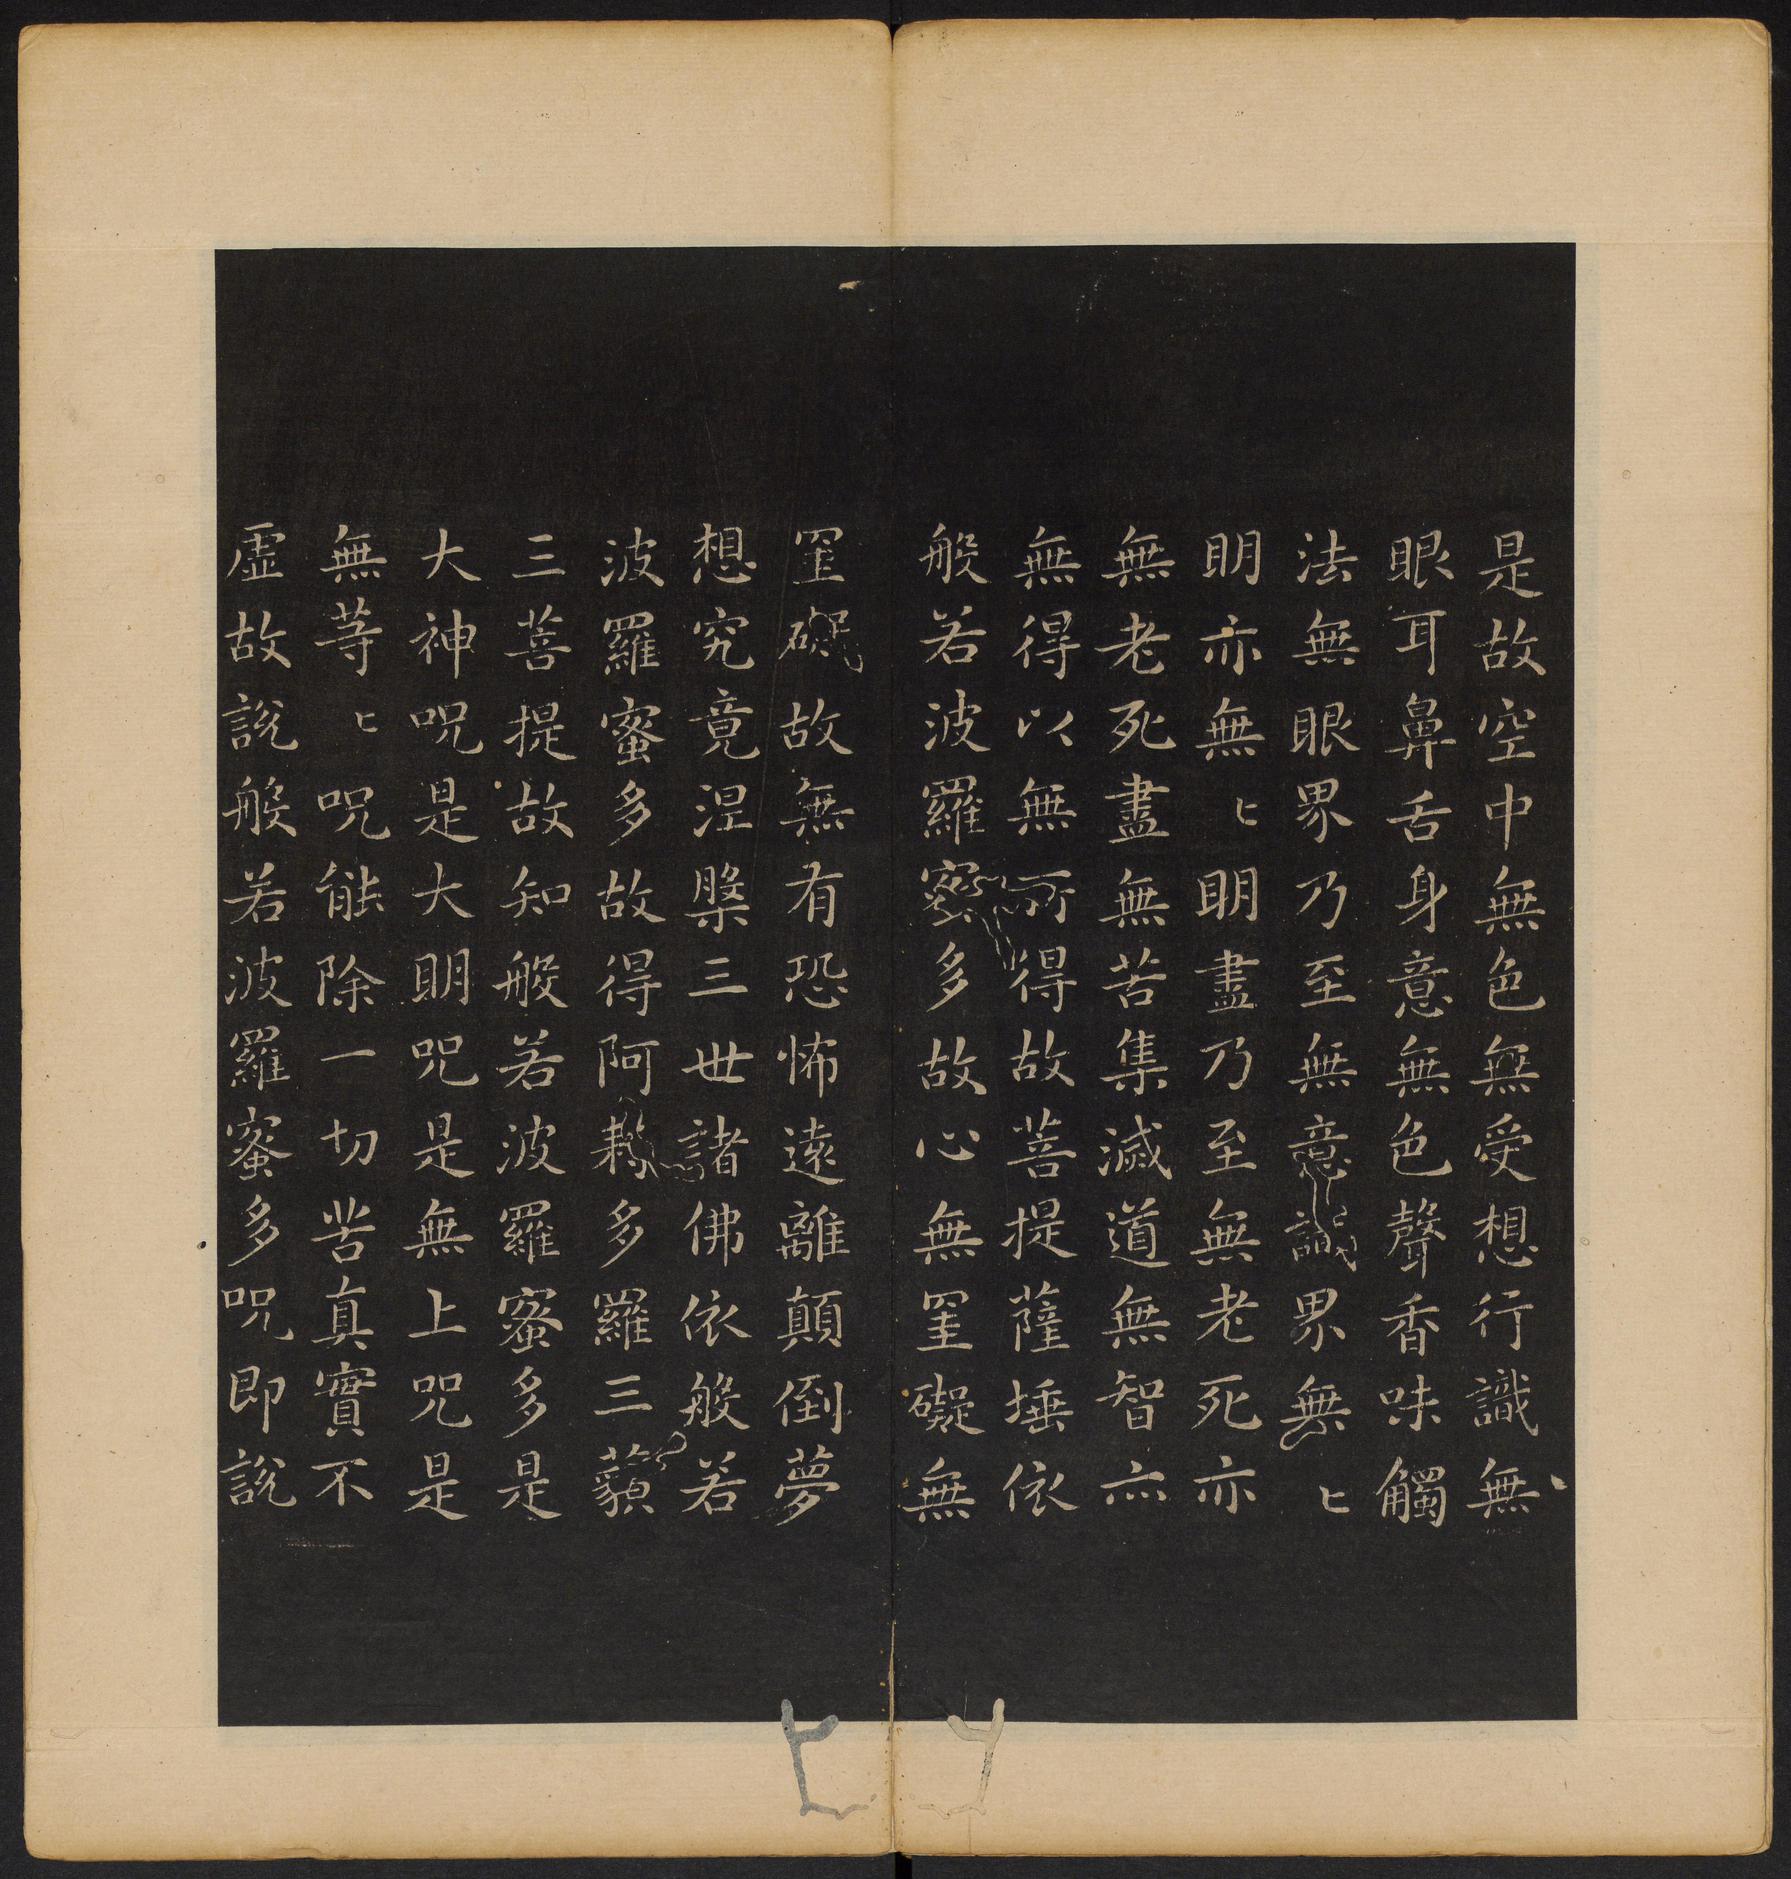 是故空中無色無受想行識無
眼耳鼻舌身意無色聲香味觸
法無眼界乃至無意識界無〻
明亦無〻明盡乃至無老死亦
無老死盡無苦集滅道無智亦
無得以無所得故菩提薩埵依
般若波羅蜜多故心無罣礙無
罣礙故無有恐怖遠離顛倒夢
想究竟涅槃三世諸佛依般若
波羅蜜多故得阿耨多羅三藐
三菩提故知般若波羅蜜多是
大神呪是大明呪是無上呪是
無等〻呪能除一切苦真實不
虛故說般若波羅蜜多呪即說